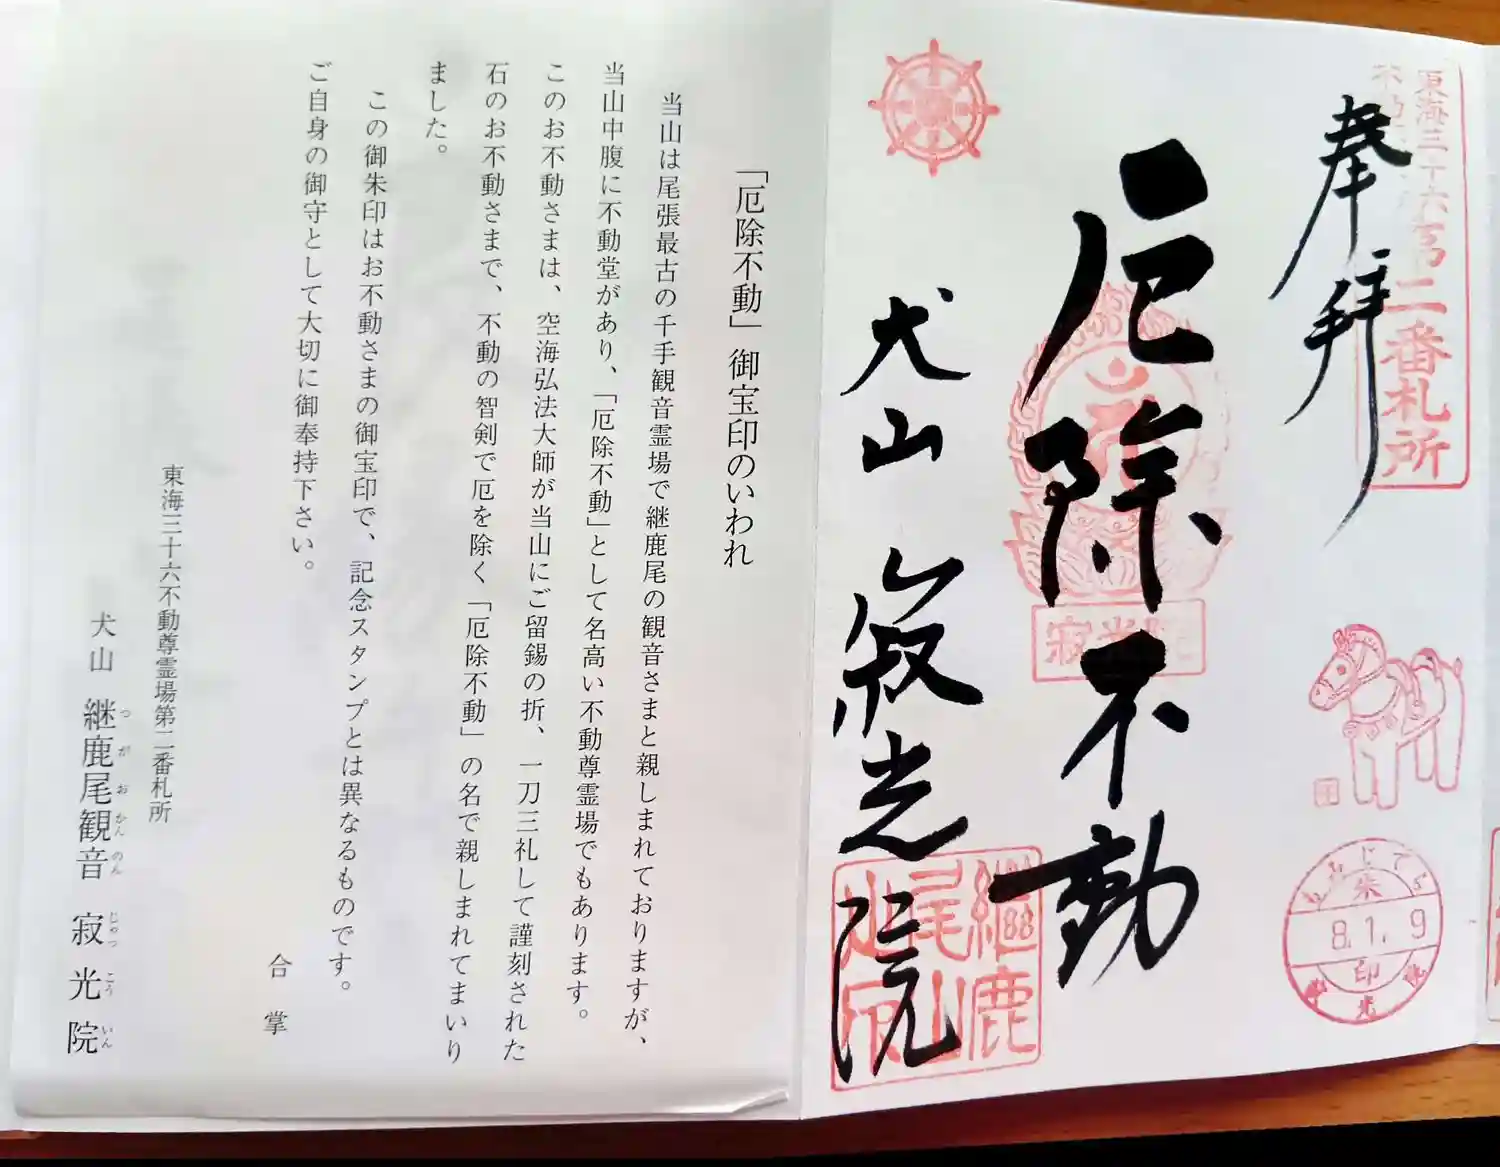 東海三十六
第二番札所
奉拝
厄除不動
犬山 寂光院
寂光院
継鹿
尾山
もみじでら
朱
8.1.9
印
寂光院
「厄除不動」御宝印のいわれ
当山は尾張最古の千手観音霊場で継鹿尾の観音さまと親しまれておりますが、
当山中腹に不動堂があり、「厄除不動」として名高い不動尊霊場でもあります。
このお不動さまは、空海弘法大師が当山にご留錫の折、一刀三礼して謹刻された
石のお不動さまで、不動の智剣で厄を除く「厄除不動」の名で親しまれてまいり
ました。
この御朱印はお不動さまの御宝印で、記念スタンプとは異なるものです。
ご自身の御守として大切に御奉持下さい。
合掌
東海三十六不動尊霊場第二番札所
犬山 継鹿尾観音 寂光院
つがおかんのん じゃっこういん